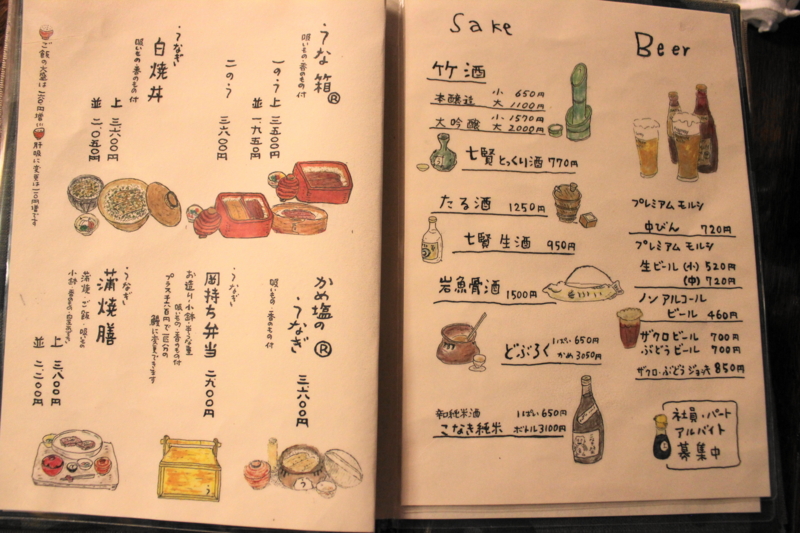 ・うな箱®
吸いもの・香のもの付
一の・う
上 三五〇〇円
並 一、九五〇円
二の・う
三六〇〇円
・うなぎ
白焼丼
吸いもの・香のもの付
上 三六〇〇円
並 二、〇五〇円
肝吸に変更は一〇〇円増です
かめ塩の®
・うなぎ
吸いもの・香のもの付
三六〇〇円
・うなぎ
岡持ち弁当
二九〇〇円
・うなぎ
蒲焼膳
蒲焼・ご飯・吸もの
上 三八〇〇円
並 二二〇〇円
Sake
竹酒
本醸造 小 650円
大 1100円
大吟醸 小 1570円
大 2000円
七賢とっくり酒 770円
たる酒 1250円
七賢 生酒 950円
岩魚骨酒 1500円
どぶろく 1ぱい 650円
かめ 3050円
純米酒 1ぱい 650円
こなき純米 ボトル 3100円
Beer
プレミアム モルツ
中びん 720円
プレミアム モルツ
生ビール (小) 520円
(中) 720円
ノン アルコール
ビール 460円
ザクロ ビール 700円
ぶどう ビール 700円
ザクロ・ぶどう ジョッキ 850円
社員・パート
アルバイト
募集中